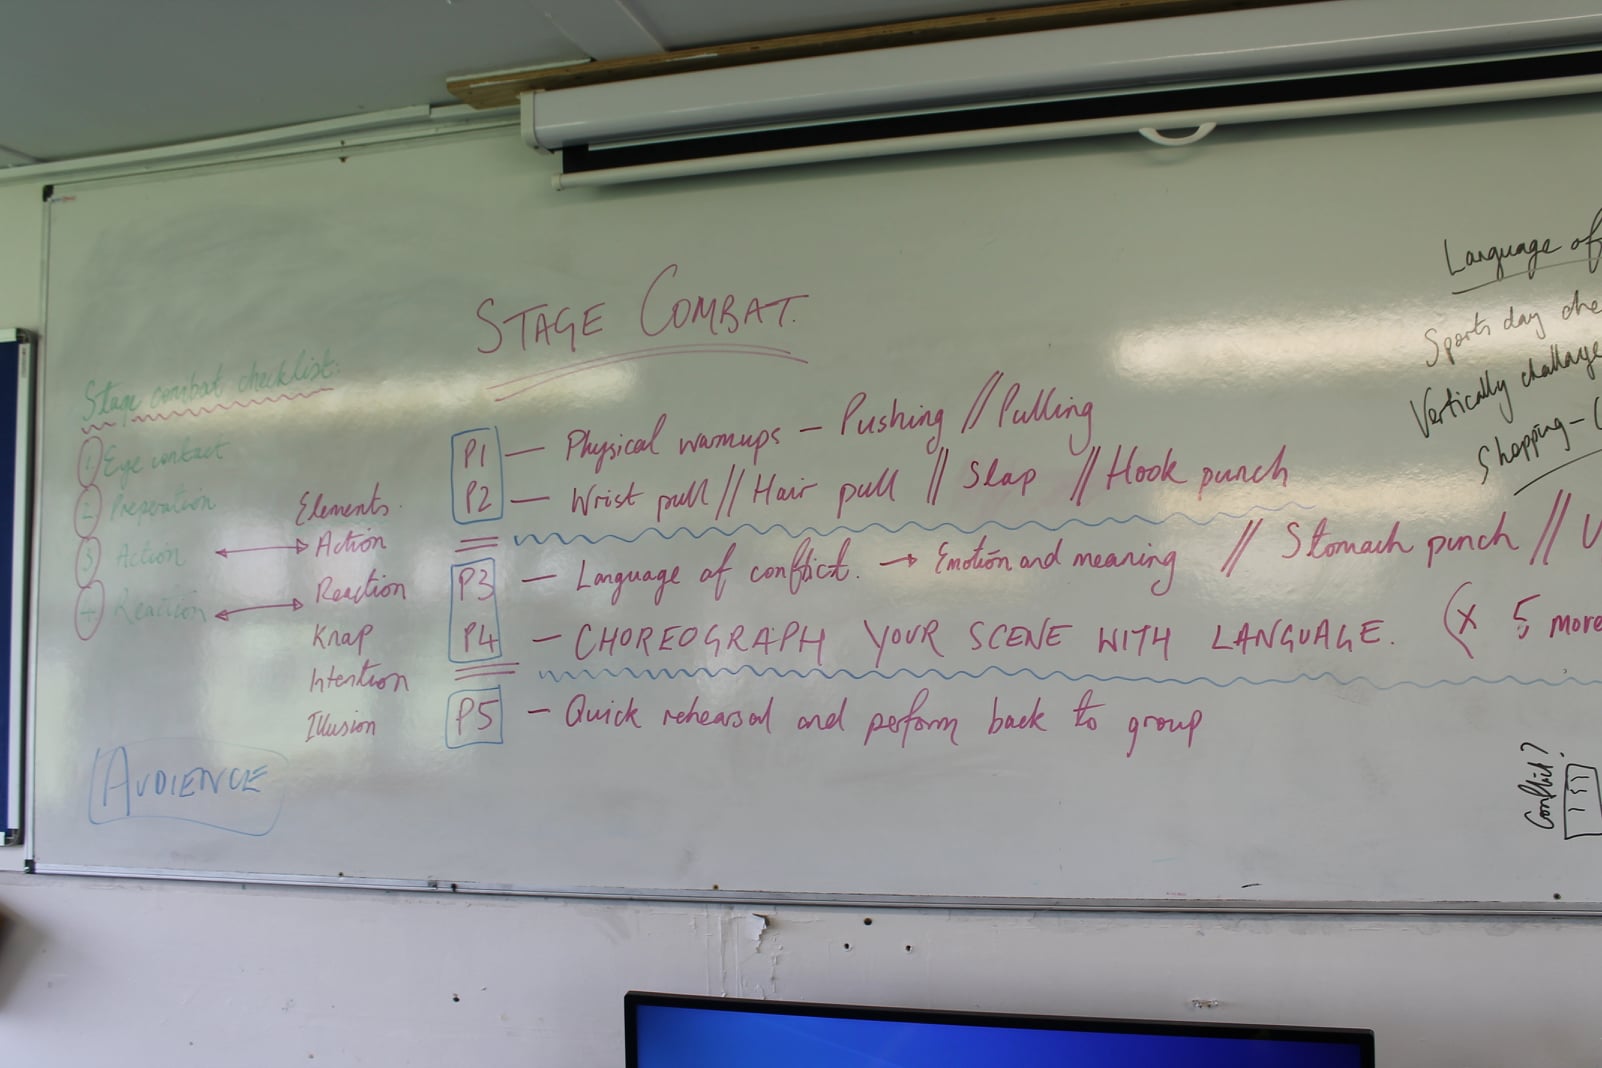 STAGE COMBAT.
Stage combat checklist:
1 Eye contact
2 Preperation
3 Action
4 Reaction
Elements.
Action
Reaction
Knap
Intention
Illusion
AUDIENCE
P1 — Physical warmups — Pushing // Pulling
P2 — Wrist pull // Hair pull // Slap // Hook punch
P3 — Language of conflict. → Emotion and meaning // Stomach punch //
P4 — CHOREOGRAPH YOUR SCENE WITH LANGUAGE. (x 5 more
P5 — Quick rehearsal and perform back to group
Language of
Sports day
Vertically
Shopping –
Conflict?